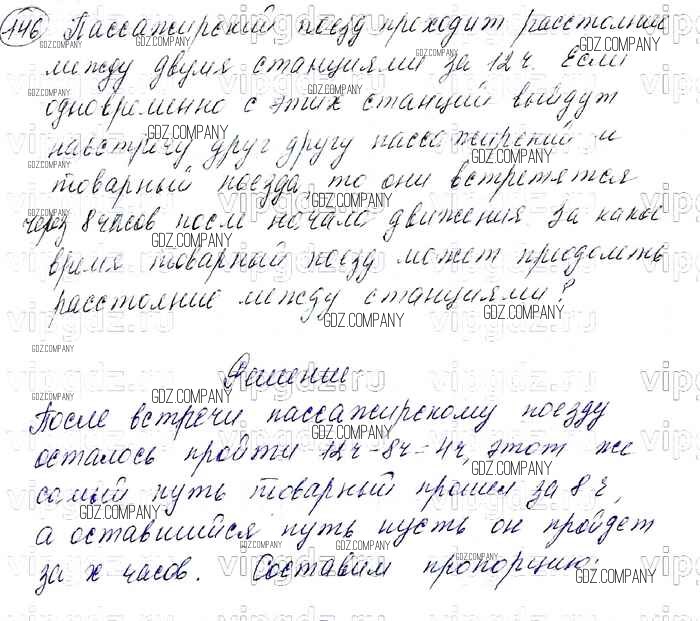 146 Пассажирский поезд проходит расстояние
между двумя станциями за 12 ч. Если
одновременно с этих станций выйдут
навстречу друг другу пассажирский и
товарный поезда, то они встретятся
через 8 часов после начала движения. За какое
время товарный поезд может преодолеть
расстояние между станциями?
Решение
После встречи пассажирскому поезду
осталось пройти 12ч-8ч=4ч, этот же
самый путь товарный прошел за 8 ч,
а оставшийся путь пусть он пройдет
за x часов. Составим пропорцию:
GDZ.COMPANY
vipgdz.ru